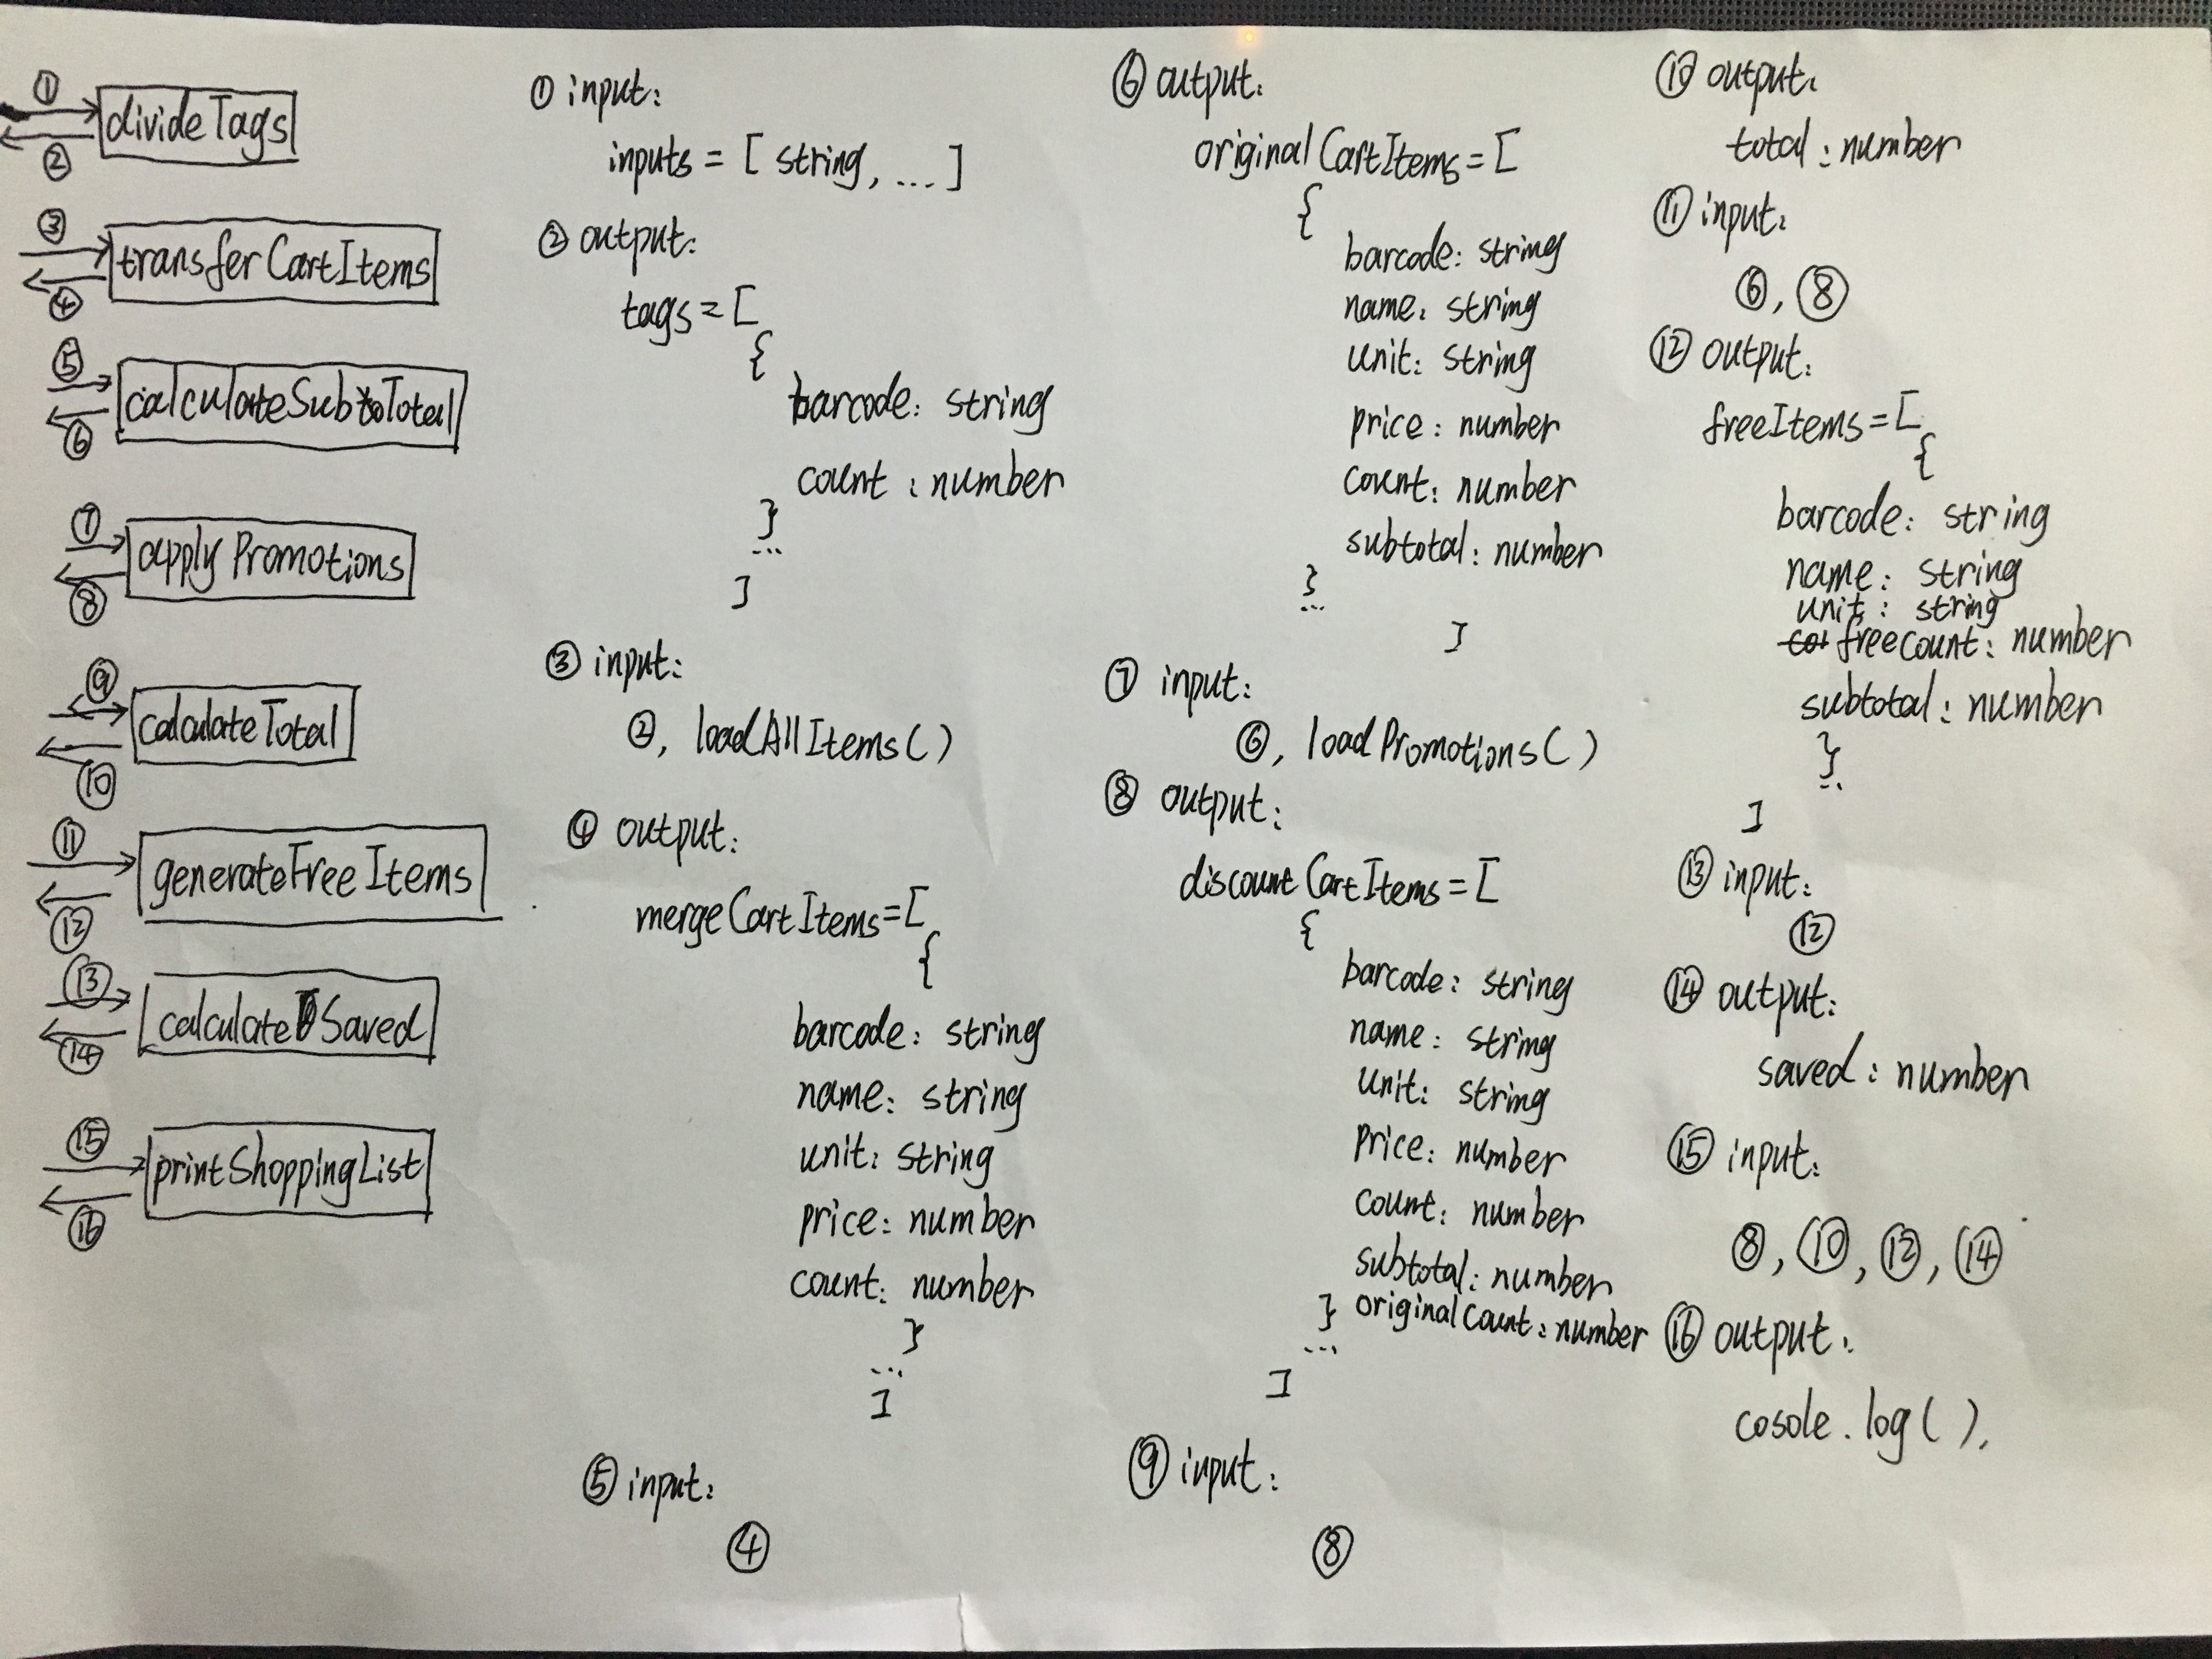 ① ② divideTags
③ ④ transferCartItems
⑤ ⑥ calculateSubTotal
⑦ ⑧ applyPromotions
⑨ ⑩ calculateTotal
⑪ ⑫ generateFreeItems
⑬ ⑭ calculateSaved
⑮ ⑯ printShoppingList
① input:
inputs = [ string, ... ]
② output:
tags = [
{
barcode: string
count: number
}
...
]
③ input:
②, loadAllItems()
④ output:
mergeCartItems = [
{
barcode: string
name: string
unit: string
price: number
count: number
}
...
]
⑤ input:
④
⑥ output:
originalCartItems = [
{
barcode: string
name: string
unit: string
price: number
count: number
subtotal: number
}
...
]
⑦ input:
⑥, loadPromotions()
⑧ output:
discountCartItems = [
{
barcode: string
name: string
unit: string
price: number
count: number
subtotal: number
originalCount: number
}
...
]
⑨ input:
⑧
⑩ output:
total: number
⑪ input:
⑥, ⑧
⑫ output:
freeItems = [
{
barcode: string
name: string
unit: string
freeCount: number
subtotal: number
}
...
]
⑬ input:
⑫
⑭ output:
saved: number
⑮ input:
⑧, ⑩, ⑫, ⑭
⑯ output:
cosole.log().